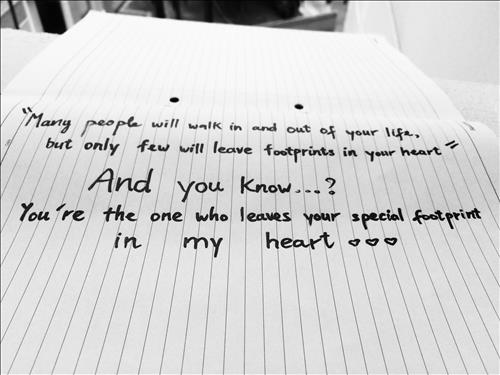 "Many people will walk in and out of your life,
but only few will leave footprints in your heart"
And you know...?
You're the one who leaves your special footprint
in my heart ♡♡♡